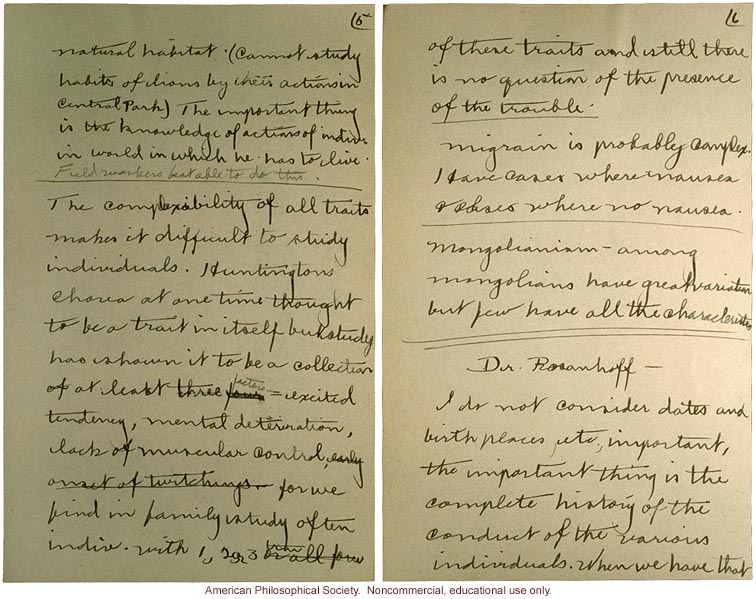 15
natural habitat. (Cannot study
habits of lions by their actions in
Central Park) The important thing
is the knowledge of actions of indivs
in world in which he has to live.
Field workers best able to do this.
The complexibility of all traits
makes it difficult to study
individuals. Huntingtons
chorea at one time thought
to be a trait in itself but study
has shown it to be a collection
of at least three four factors = excited
tendency, mental deterration,
lack of muscular control, early
onset of twitchings - for we
find in family study often
indiv. with 1, 2 or 3 or all four
16
of these traits and still there
is no question of the presence
of the trouble.
migrain is probably complex.
I have cases where nausea
& cases where no nausea.
Mongolianism - among
mongolians have great variation
but few have all the characteristics
Dr. Rosanhoff -
I do not consider dates and
birth places, etc, important,
the important thing is the
complete history of the
conduct of the various
individuals. When we have that
American Philosophical Society. Noncommercial, educational use only.